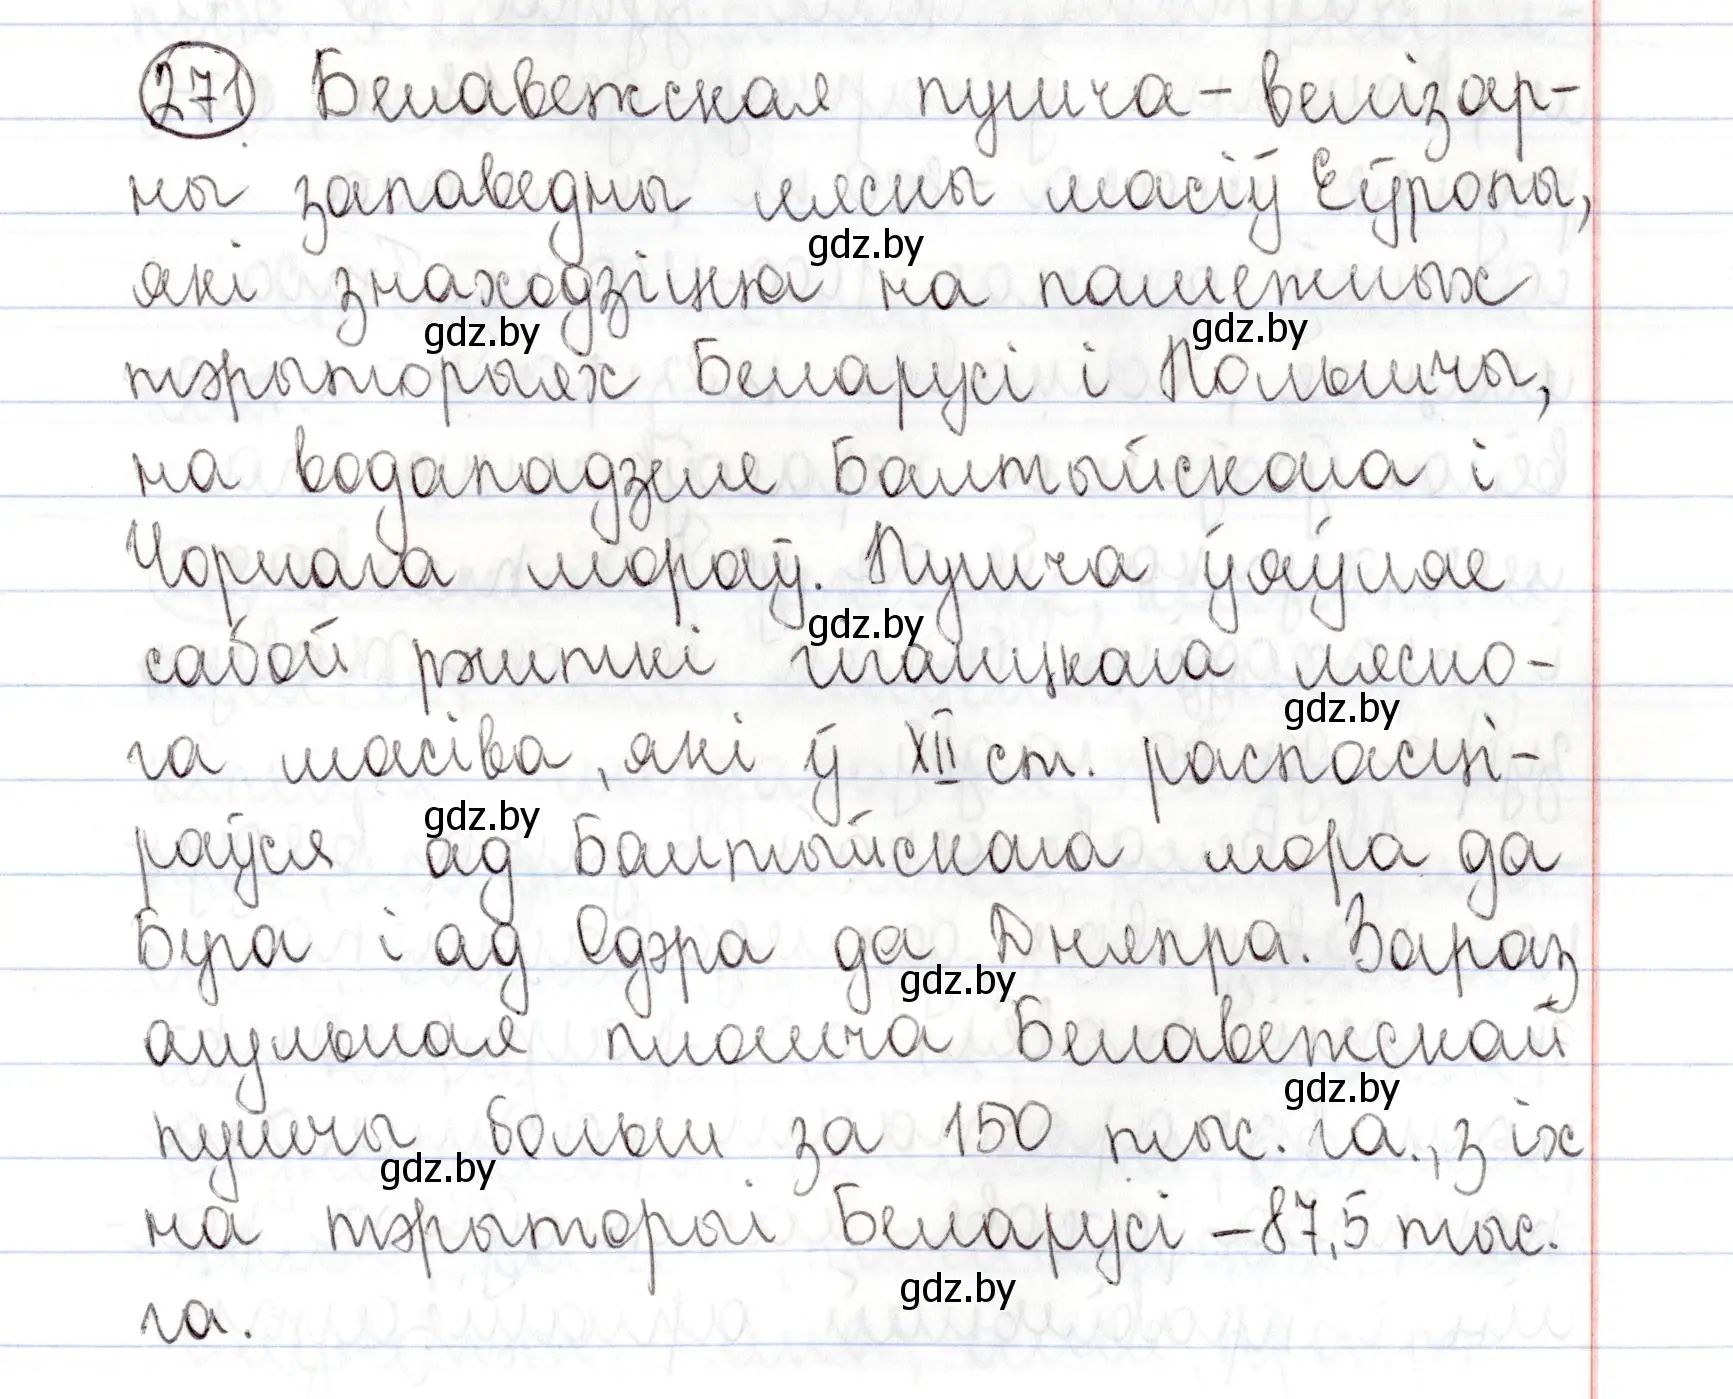 271 Белавежская пушча – велізар-
ны запаведны лясны масіў Еўропы,
gdz.by
які знаходзіцца на памежных
gdz.by gdz.by
тэрыторыях Беларусі і Польшчы,
на водападзеле Балтыйскага і
Чорнага мораў. Пушча ўяўляе
gdz.by
сабой рэшткі гіганцкага лясно-
gdz.by
га масіва, які ў XII ст. распасці-
gdz.by
раўся ад Балтыйскага мора да
Буга і ад Одэра да Дняпра. Зараз
gdz.by
агульная плошча Белавежскай
gdz.by
пушчы больш за 150 тыс. га., з іх
gdz.by
на тэрыторыі Беларусі – 87,5 тыс.
gdz.by
га.